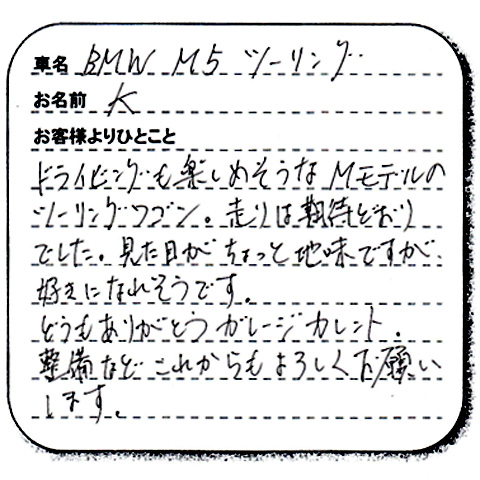 車名 BMW M5 ツーリング
お名前 K
お客様よりひとこと
ドライビングも楽しめそうなMモデルの
ツーリングワゴン。走りは期待どおり
でした。見た目がちょっと地味ですが
好きになれそうです。
どうもありがとうガレージカレント。
整備などこれからもよろしくお願い
します。